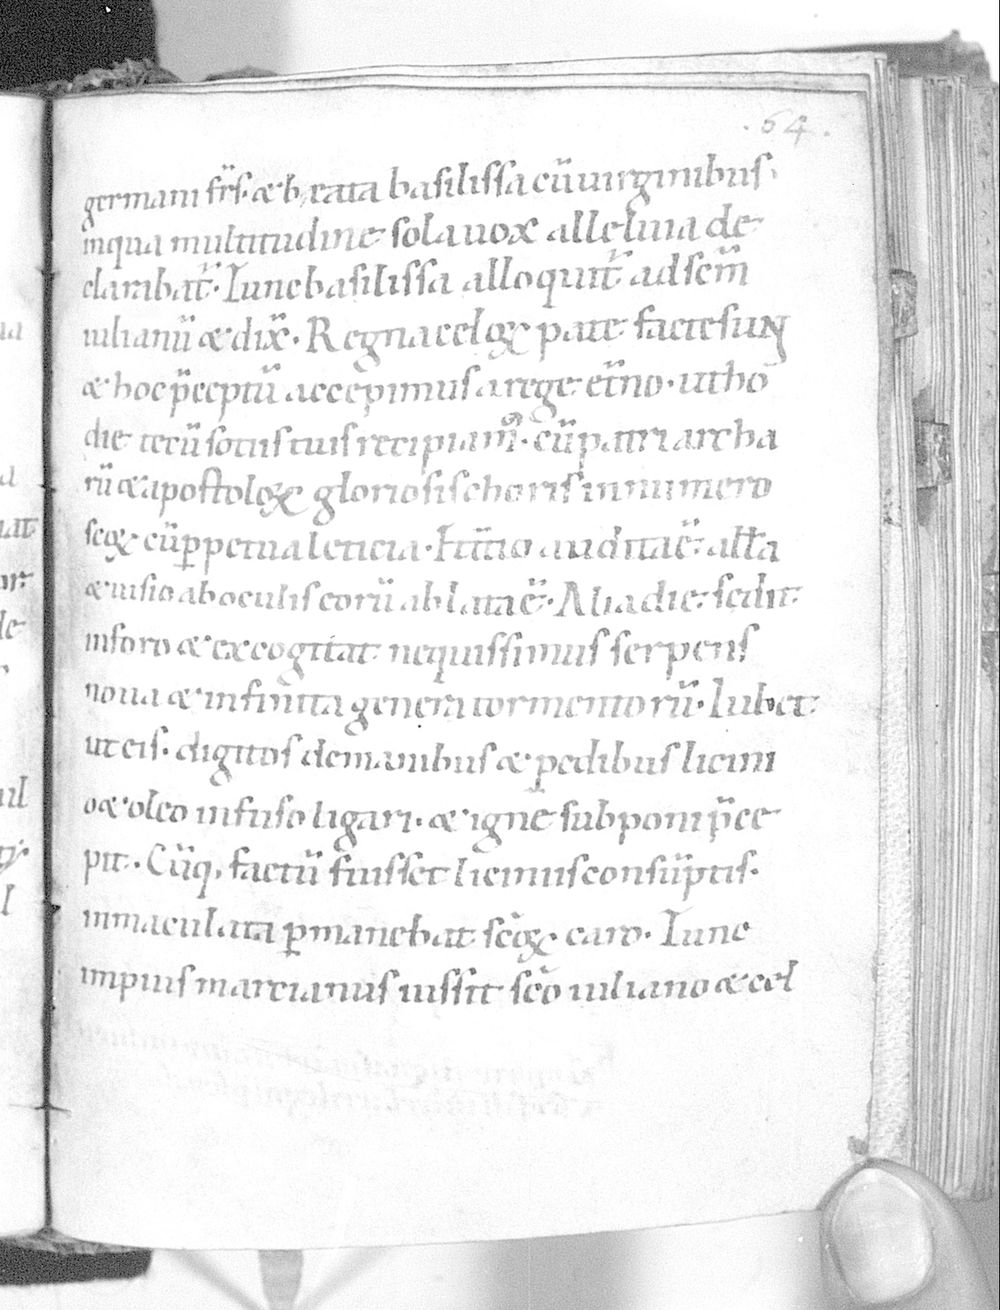 .64.
germani fr̄s. & beata basilissa cū uirginibus.
in qua multitudine sola uox alleluia de
clarabat̄. Tunc basilissa alloquit̄ ad scm̄
iulianū & dix̄. Regna celoꝝ pate factesuɴ
& hoc p̄ceptū accepimus arege et̄no. ut ho
die tecū sotus tuis recipiam̄. cū patriarcha
rū & apostoloꝝ gloriosis choris innumero
scoꝝ cū ꝑpetua leticia. Itm̄ auditaē. alłła
& uisio ab oculis eorū ablataē. Alia die sedit
in foro & excogitat nequissimus serpens
noua & infinita genera tormentorū. Iubet
ut eis. digitos demanibus & pedibus licini
o & oleo infuso ligari. & ignē subponi p̄ce
pit. Cūq, factū fuisset licinius consūptis.
inmaculata ꝑmanebat sc̄oꝝ caro. Tunc
impius marcianus iussit sc̄o iuliano & cel